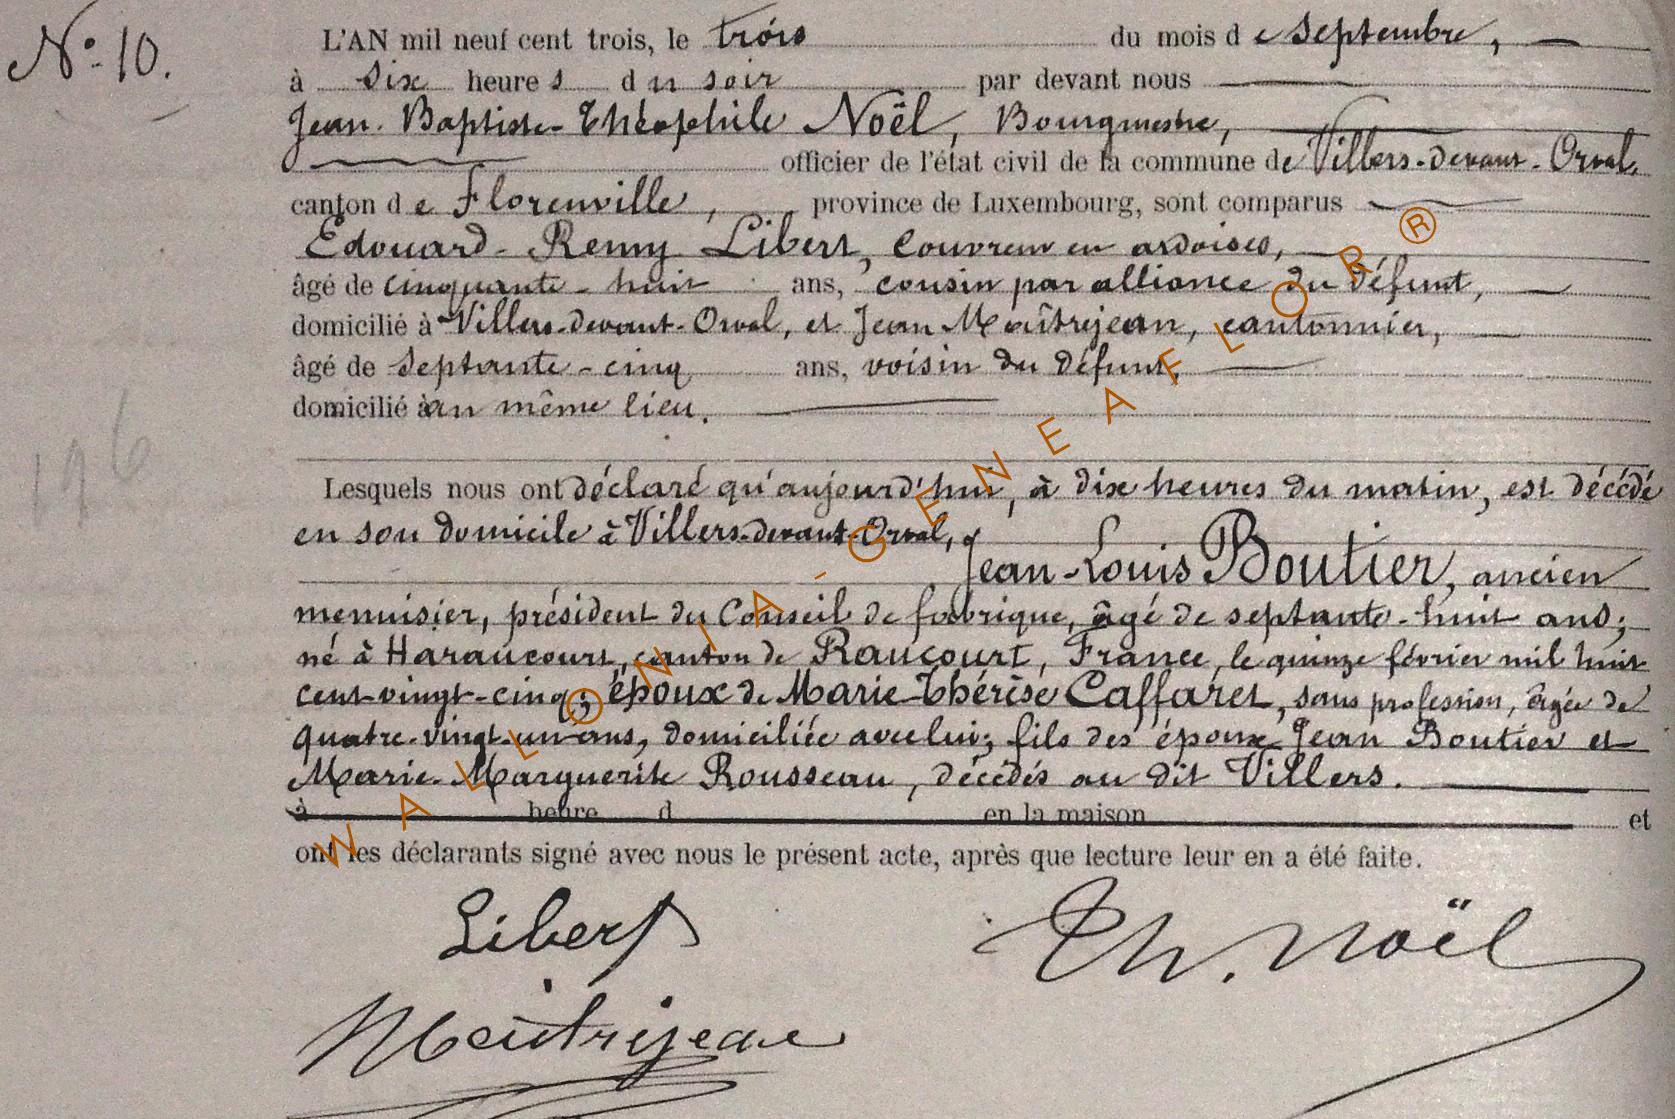 N° 10.
L'AN mil neuf cent trois, le trois du mois de Septembre,
à six heures du soir par devant nous
Jean-Baptiste-Théophile Noël, Bourgmestre,
officier de l'état civil de la commune de Villers-devant-Orval,
canton de Florenville, province de Luxembourg, sont comparus
Edouard-Remy Libert, couvreur en ardoises,
âgé de cinquante-huit ans, cousin par alliance du défunt,
domicilié à Villers-devant-Orval, et Jean Maîtrejean, cantonnier,
âgé de septante-cinq ans, voisin du défunt,
domicilié au même lieu.
196
Lesquels nous ont déclaré qu'aujourd'hui, à dix heures du matin, est décédé
en son domicile à Villers-devant-Orval,
Jean-Louis Boutier, ancien
menuisier, président du Conseil de fabrique, âgé de septante-huit ans;
né à Haraucourt, canton de Raucourt, France, le quinze février mil huit
cent-vingt-cinq; époux de Marie-Thérèse Caffaret, sans profession, âgée de
quatre-vingt-un ans, domiciliée avec lui; fils des époux Jean Boutier et
Marie-Marguerite Rousseau, décédés au dit Villers.
à heure d en la maison et
ont les déclarants signé avec nous le présent acte, après que lecture leur en a été faite.
Libert
Th. Noël
Maitrejean
WALLONIA - GENEAFLOR ®